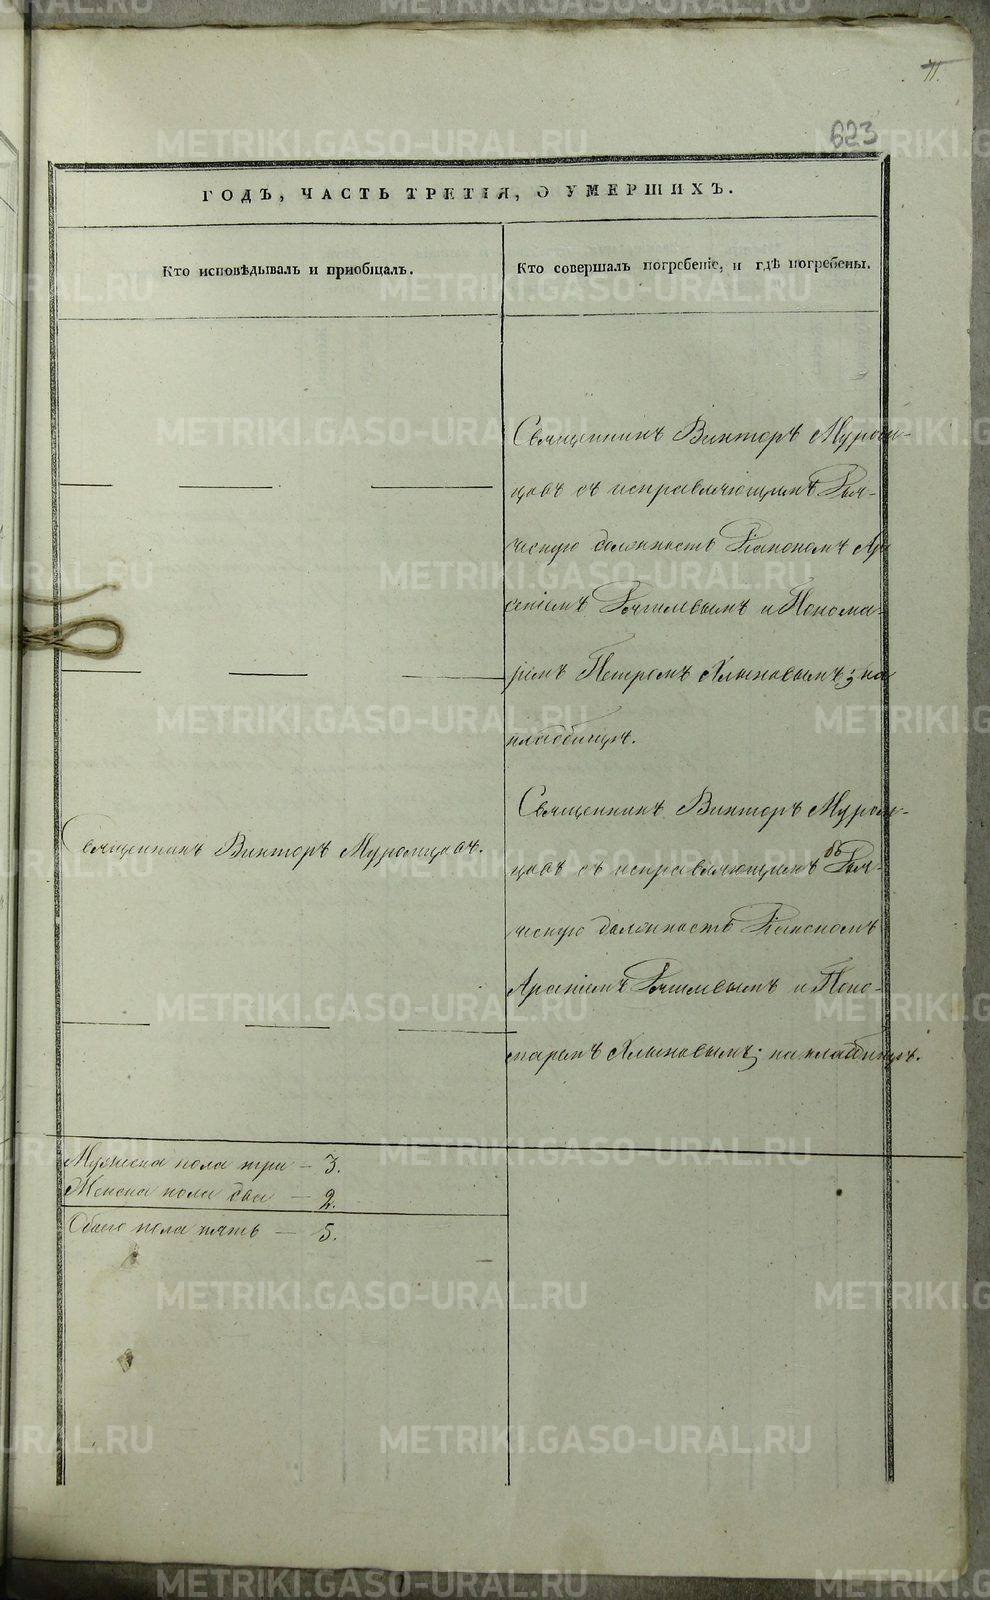 11.
623
ГОДЪ, ЧАСТЬ ТРЕТІЯ, О УМЕРШИХЪ.
Кто исповѣдывалъ и пріобщалъ.
Кто совершалъ погребеніе, и гдѣ погребены.
Священникъ Викторъ Муром-
цовъ съ исправляющимъ Дья-
ческую должность Діакономъ Ар-
сеніемъ и Понома-
ремъ Петромъ Хлыновымъ; на
кладбищѣ.
Священникъ Викторъ Муромцовъ.
Священникъ Викторъ Муром-
цовъ съ исправляющимъ Дья-
ческую должность Діакономъ
Арсеніемъ и Поно-
маремъ Хлыновымъ; на кладбищѣ.
Мужеска пола три — 3.
Женска пола два — 2.
Обоего пола пять — 5.
METRIKI.GASO-URAL.RU